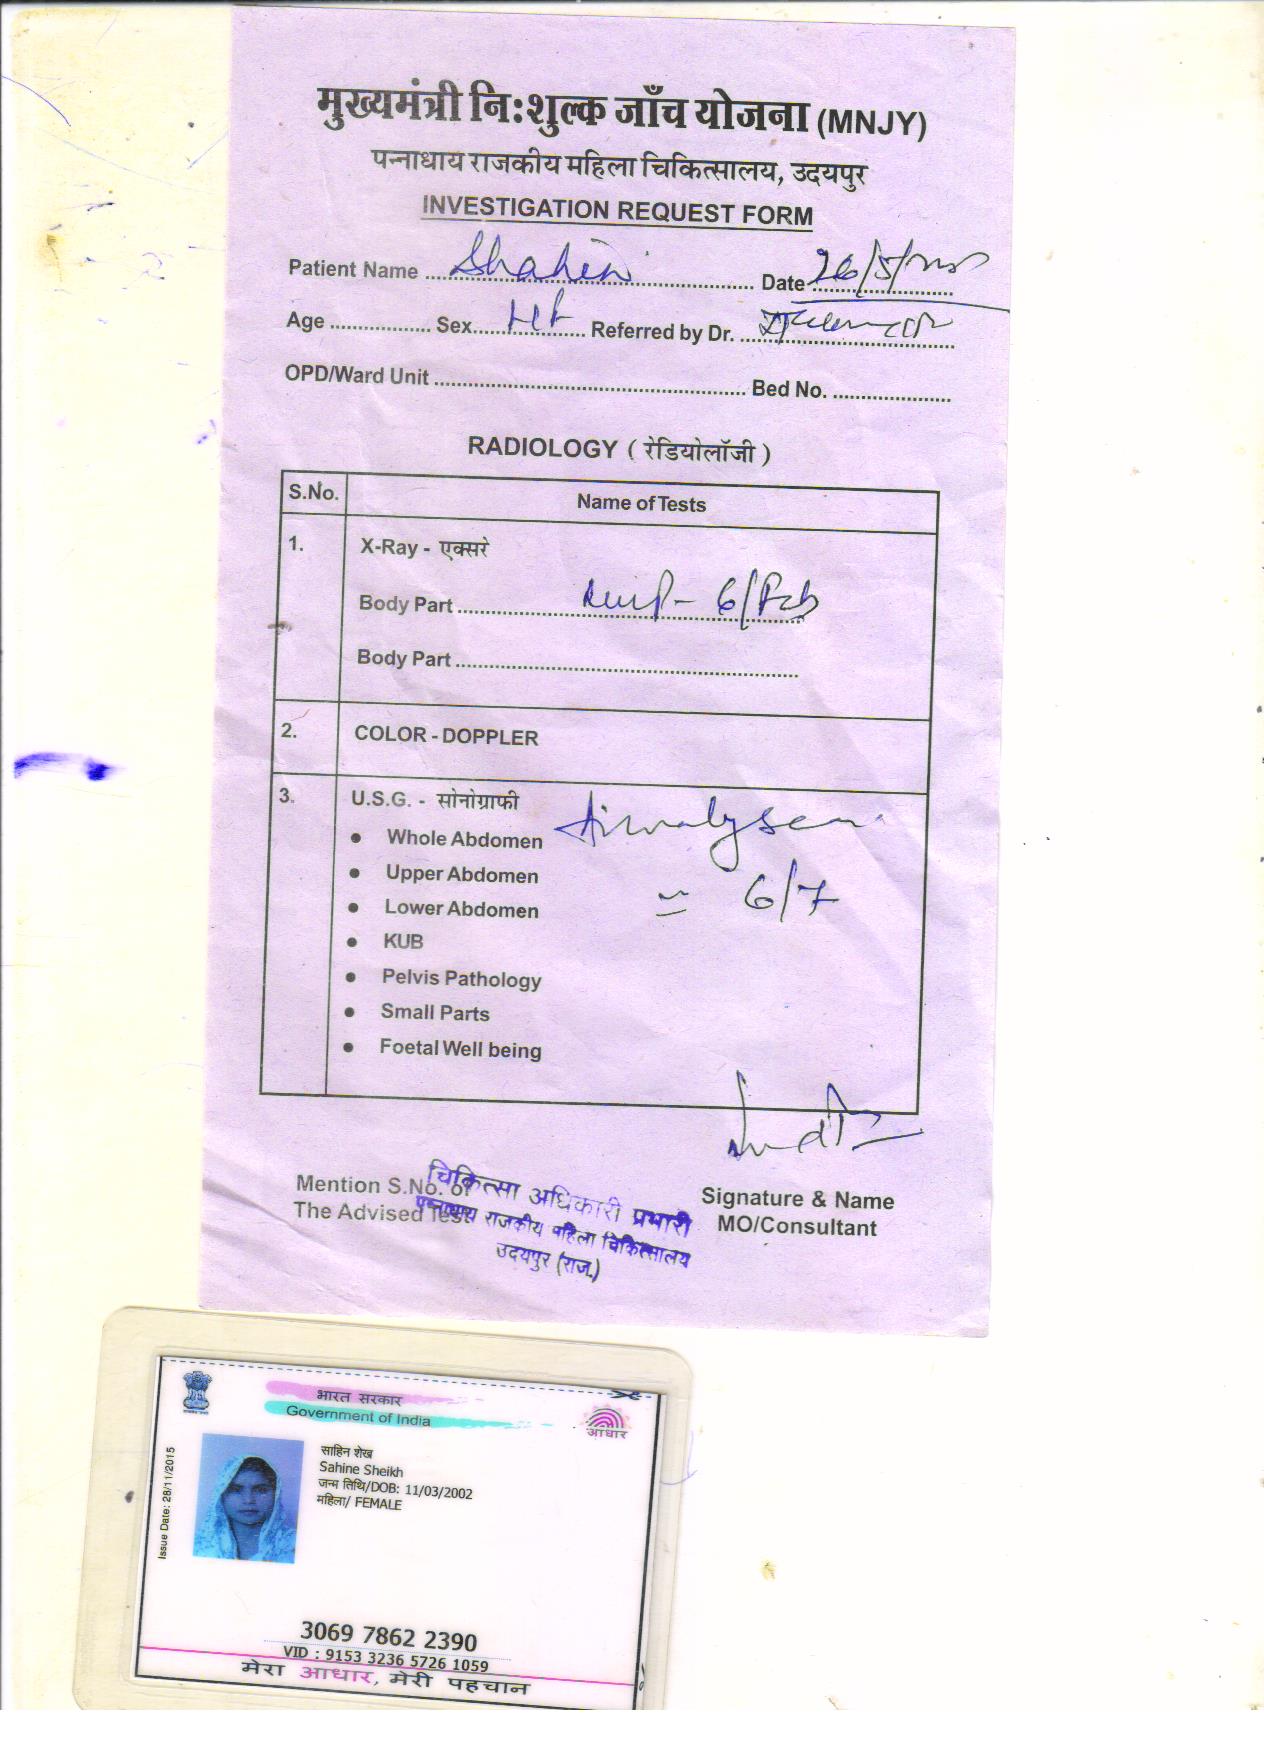 मुख्यमंत्री नि:शुल्क जाँच योजना (MNJY)
पन्नाधाय राजकीय महिला चिकित्सालय, उदयपुर
INVESTIGATION REQUEST FORM
Patient Name Shahin Date 26/5/
Age Sex Referred by Dr.
OPD/Ward Unit Bed No.
RADIOLOGY ( रेडियोलॉजी )
S.No. Name of Tests
1. X-Ray - एक्सरे
Body Part 6/Feb
Body Part
2. COLOR - DOPPLER
3. U.S.G. - सोनोग्राफी
• Whole Abdomen
• Upper Abdomen
6/7
• Lower Abdomen
• KUB
• Pelvis Pathology
• Small Parts
• Foetal Well being
Mention S.No. of
The Advised Test
Signature & Name
MO/Consultant
चिकित्सा अधिकारी प्रभारी
पन्नाधाय राजकीय महिला चिकित्सालय
उदयपुर (राज.)
भारत सरकार
Government of India
आधार
साहिन शेख
Sahine Sheikh
जन्म तिथि/DOB: 11/03/2002
महिला/ FEMALE
Issue Date: 28/11/2015
3069 7862 2390
VID : 9153 3236 5726 1059
मेरा आधार, मेरी पहचान